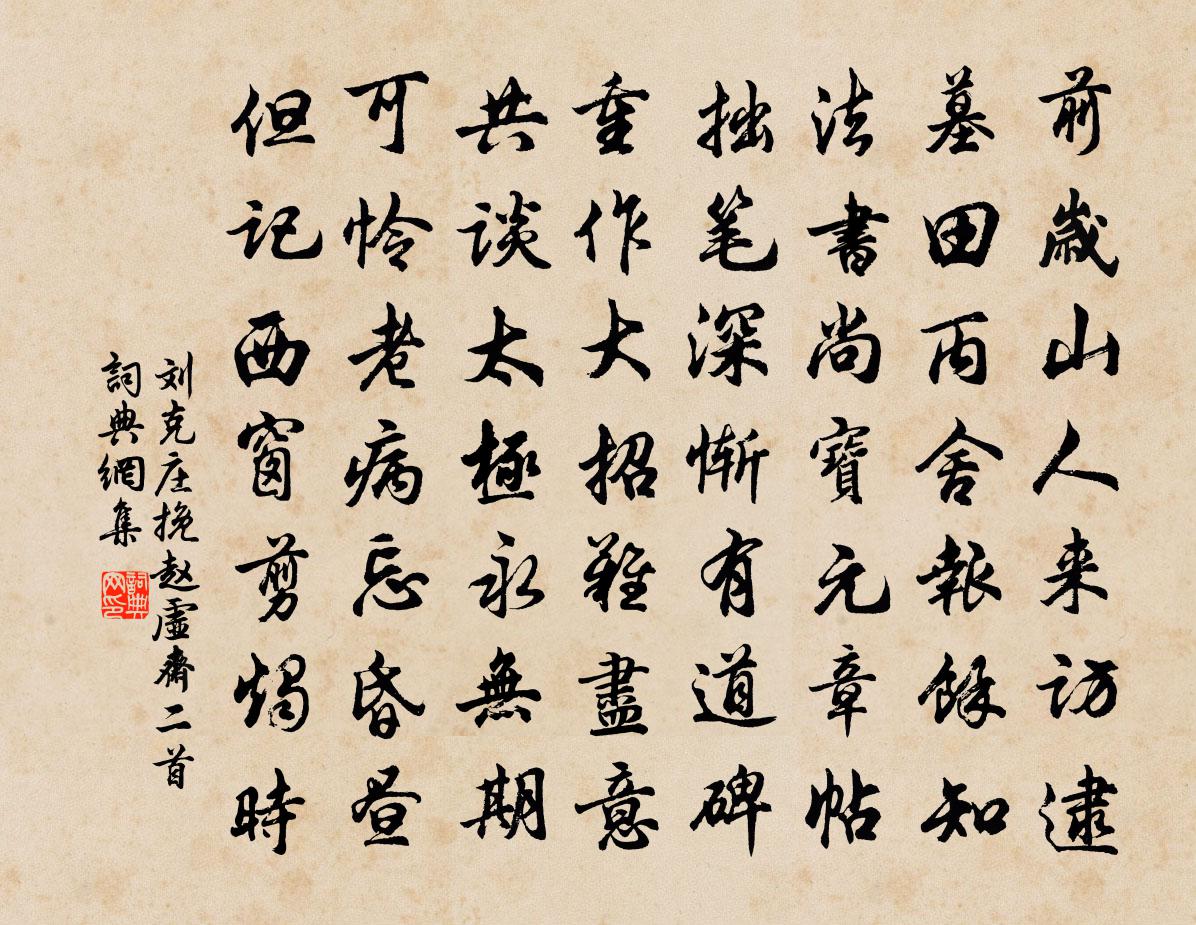 前歲山人来访逮
墓田丙舍報餘知
法書尚寶元章帖
拙笔深慚有道碑
重作大招難盡意
共談太極永無期
可怜老病忘昏昼
但记西窗剪燭時
刘克庄挽赵虚齋二首
詞典網集
詞典网印